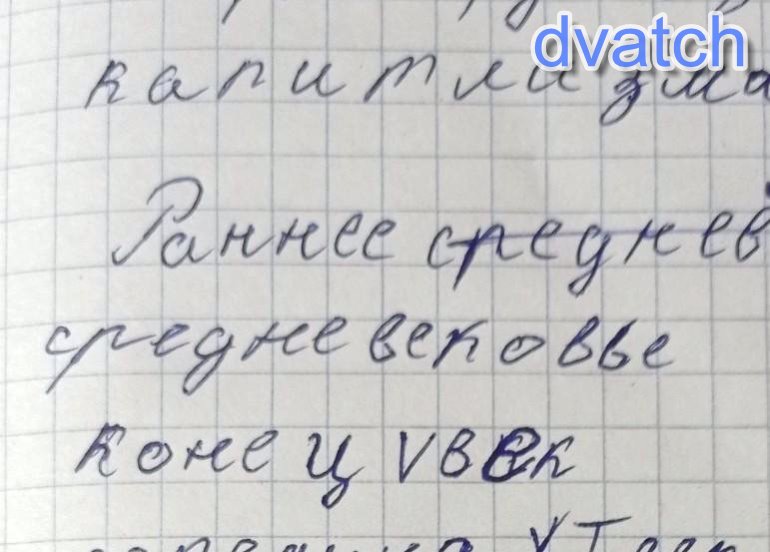 dvatch
капитлизма
Раннее среднев
средневековье
конец V век